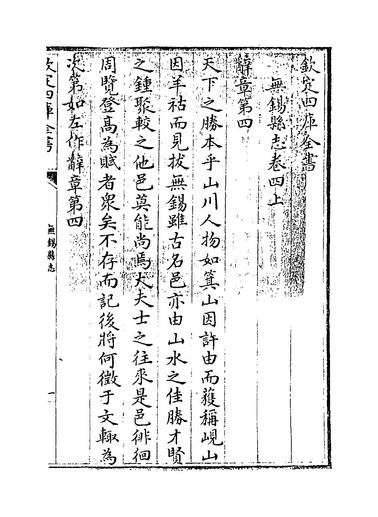 欽定四庫全書
無錫縣志卷四上
辭章第四
天下之勝本乎山川人物如箕山因許由而獲稱峴山
因羊祜而見拔無錫雖古名邑亦由山水之佳勝才賢
之鍾聚較之他邑莫能尚焉大夫士之往來是邑徘徊
周覽登高為賦者衆矣不存而記後將何徵于文輙為
次第如左作辭章第四
欽定四庫全書
無錫縣志
一